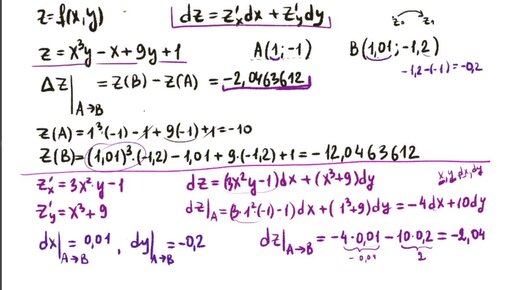 z=f(x,y) dz = z'x dx + z'y dy z₀ z₁
z = x³y - x + 9y + 1 A(1; -1) B(1,01; -1,2)
-1,2-(-1)=-0,2
Δz|A→B = z(B) - z(A) = -2,0463612
z(A) = 1³·(-1) - 1 + 9(-1) + 1 = -10
z(B) = (1,01)³·(-1,2) - 1,01 + 9·(-1,2) + 1 = -12,0463612
z'x = 3x²·y - 1 dz = (3x²y-1)dx + (x³+9)dy x,y,dx,dy
z'y = x³ + 9 dz|A = (3·1²·(-1)-1)dx + (1³+9)dy = -4dx+10dy
dx|A→B = 0,01 , dy|A→B = -0,2 dz|A→B = -4·0,01 - 10·0,2 = -2,04
-0,01 2